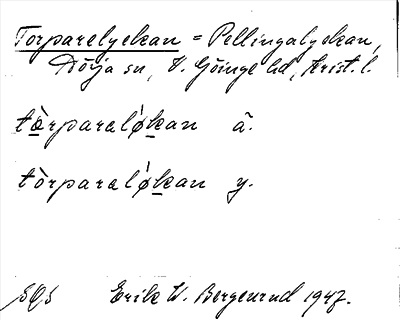 Torparelyckan = Pellingalyckan,
Dörja sn, V. Göinge hd, Krist. l.
tòrparelǿkan ä.
tòrparelǿkan y.
SOS Erik W. Bergenrud 1947.